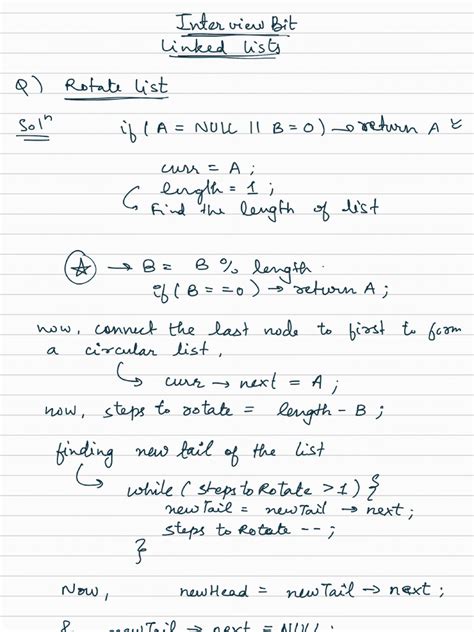 InterviewBit
Linked lists
Q) Rotate list
Solⁿ if ( A = NULL || B = 0 ) → return A
curr = A ;
length = 1 ;
↳ Find the length of list
☆ → B = B % length .
if ( B = = 0 ) → return A ;
now, connect the last node to first to form
a circular list,
↳ curr → next = A ;
now, steps to rotate = length - B ;
finding new tail of the list
↳ while ( steps to Rotate > 1 ) {
newTail = newTail → next ;
steps to Rotate -- ;
}
Now, newHead = newTail → next ;
& newTail → next = NULL ;